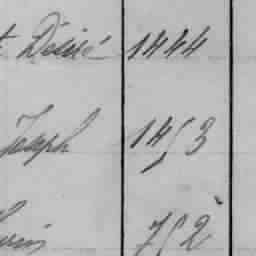 Désiré 1444
Joseph 1453
752